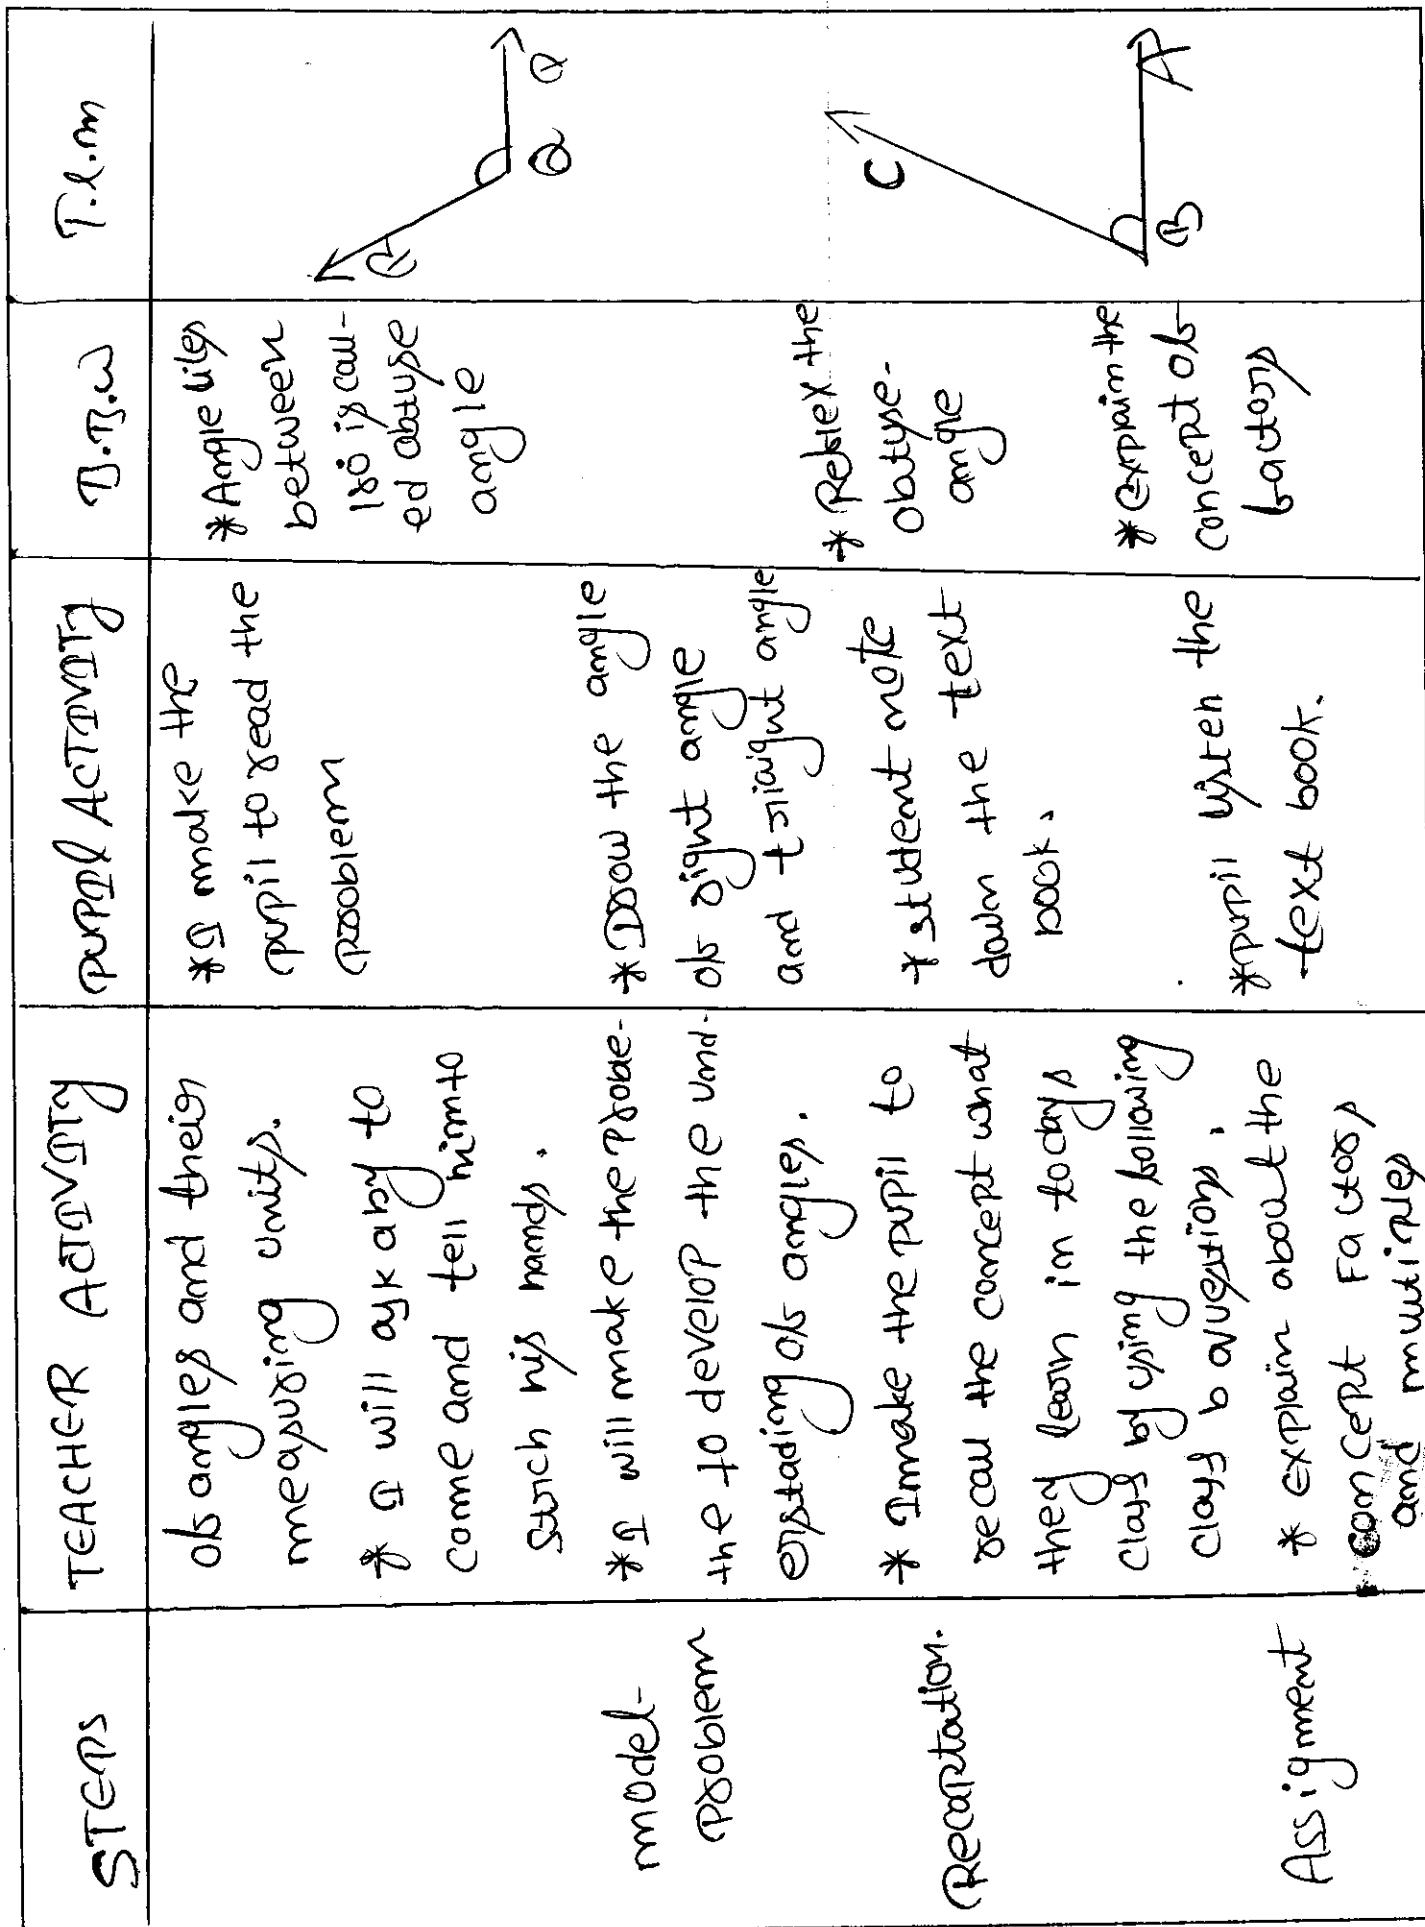 STEPS
TEACHER ACTIVITY
PUPIL ACTIVITY
B.B.W
T.l.m
of angles and their
measuring units.
* I will ask any to
come and tell him to
strich his hands.
* I make the
pupil to read the
problem
* Angle lies
between
180 is call-
ed obtuse
angle
R
Q
Q
model-
problem
* I will make the probe-
the to develop the und-
erstading of angles.
* Drow the angle
of right angle
and triaight angle
Recaptation.
* I make the pupil to
recall the concept what
they learn in todays
class by using the following
class b questions.
* student note
dawn the text
book.
* Reflex the
obtuse-
angle
C
B
A
Assignment
* explain about the
concept Factors
and multiples
* pupil listen the
text book.
* explain the
concept of
factors